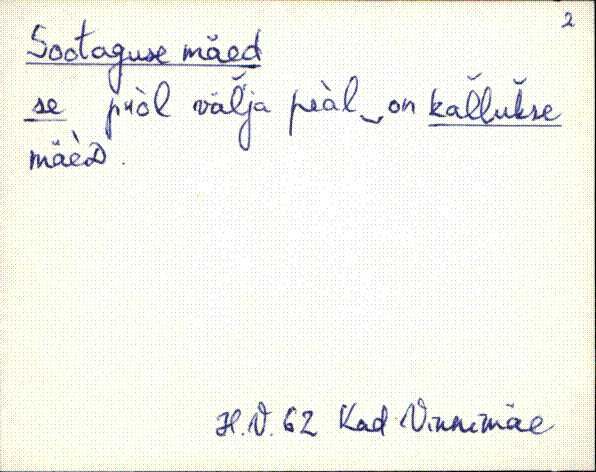 2
Sootaguse mäed
se pūòl väľja peàl‿on kall̆ukse
mäèD.
H.V. 62 Kad Vinnimäe